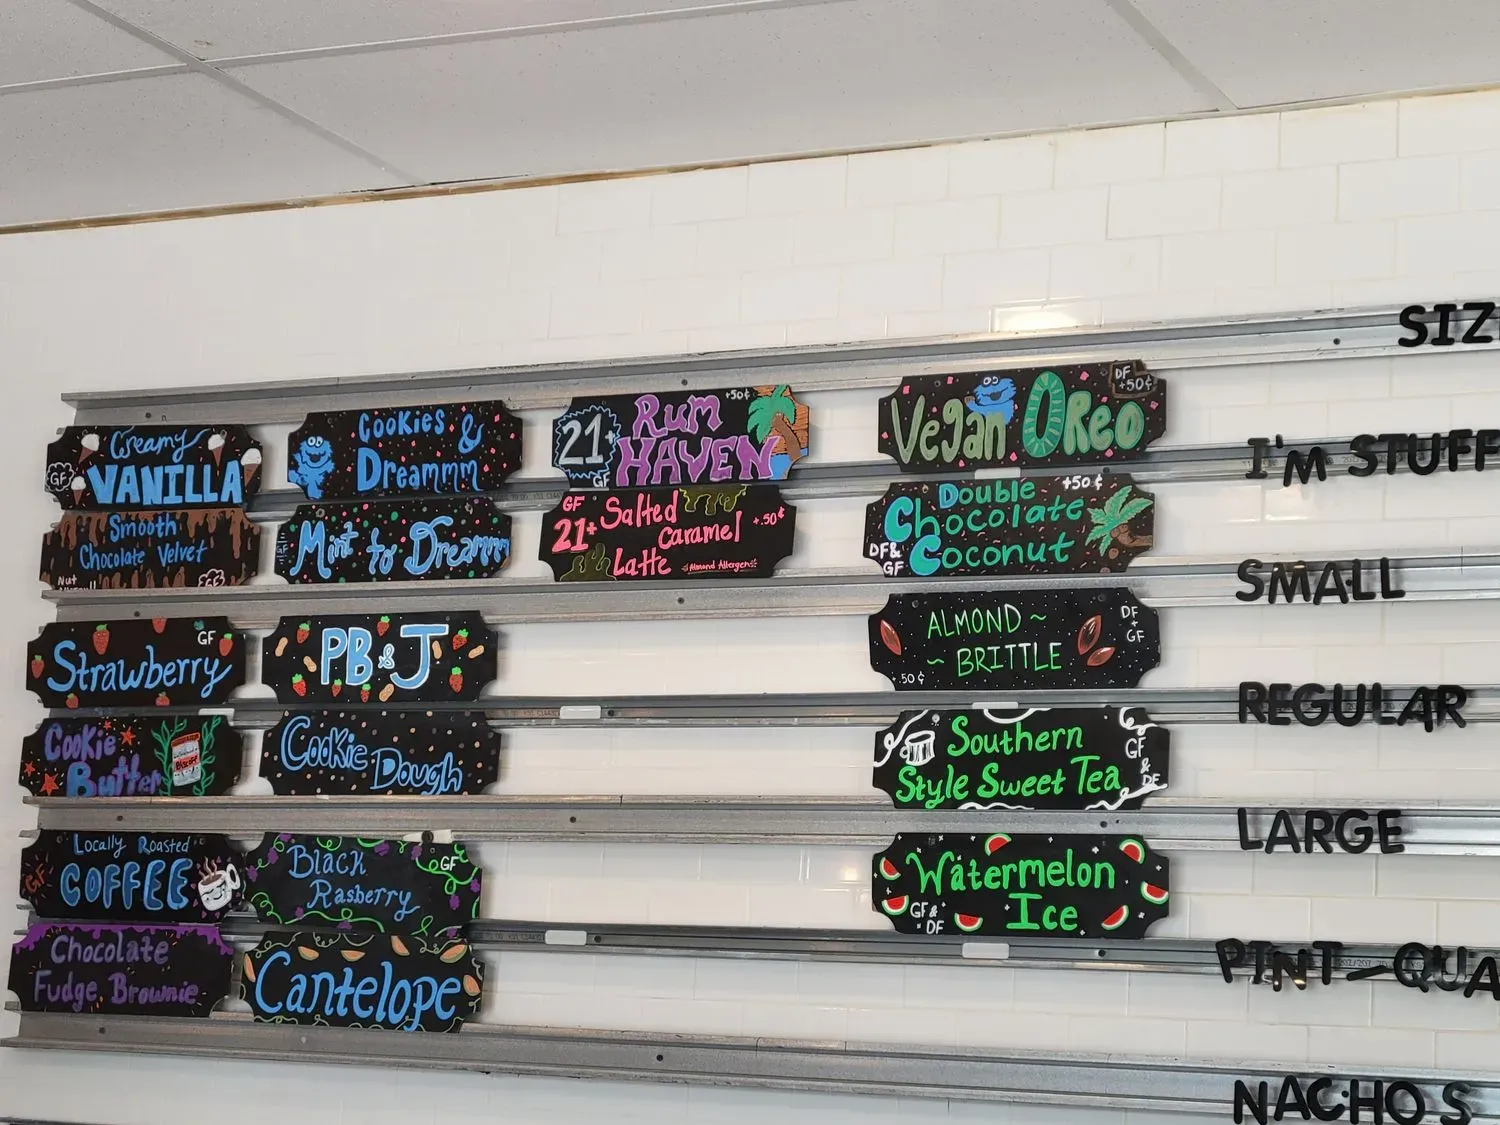 Creamy
VANILLA
GF
Smooth
Chocolate Velvet
Nut
Strawberry
GF
Cookie
Butter
Biscoff
Locally Roasted
COFFEE
GF
Chocolate
Fudge Brownie
Cookies &
Dreammm
Mint to Dreammm
GF
PB & J
Cookie
Dough
Black
Rasberry
GF
Cantelope
21+
Rum
HAVEN
+50¢
GF
GF
21+
Salted
Caramel
Latte
+.50¢
Almond Allergen
Vegan Oreo
DF
+50¢
Double
Chocolate
Coconut
+50¢
DF&
GF
ALMOND ~
~ BRITTLE
DF
+
GF
.50¢
Southern
Style Sweet Tea
GF
&
DF
Watermelon
Ice
GF &
DF
SIZ
I'M STUFF
SMALL
REGULAR
LARGE
PINT-QUA
NACHOS